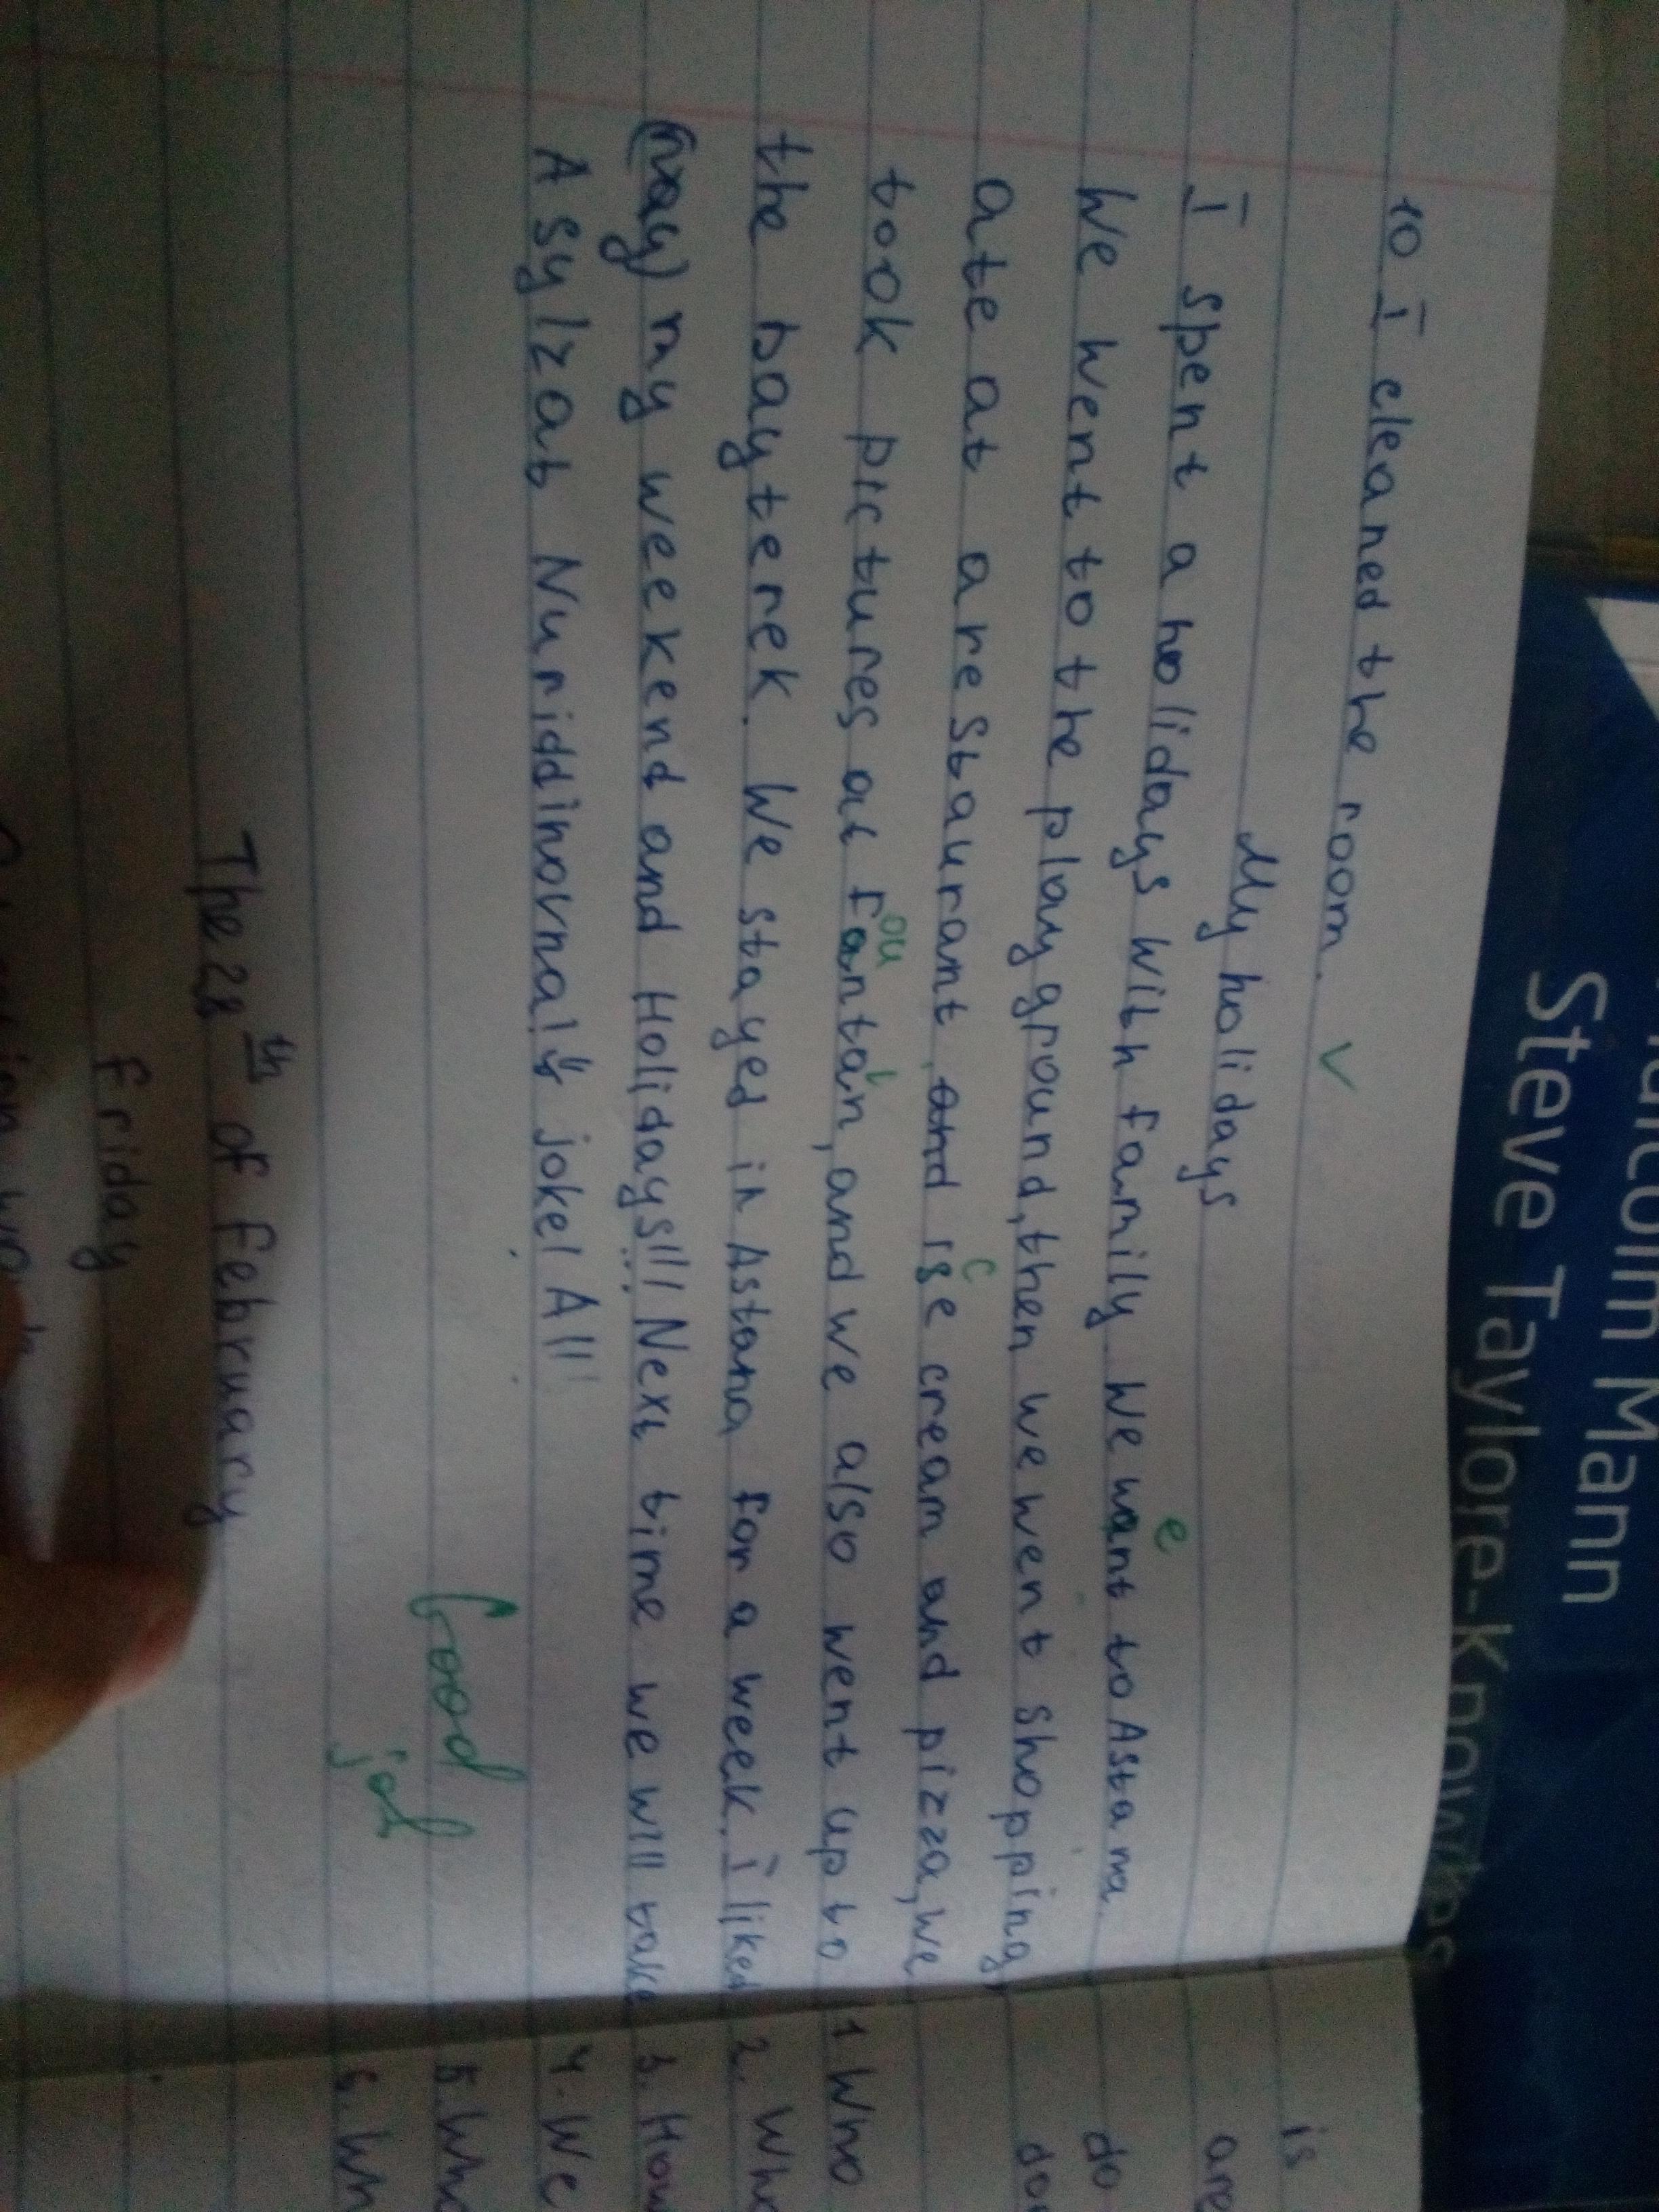 Malcolm Mann
Steve Taylore-Knowles
10 I cleaned the room. V
My holidays
I spent a holidays with family we want to Astana.
e
We went to the playground, then we went shopping,
ate at a restaurant and ise cream and pizza, we
c
took pictures at fantan, and we also went up to
ou i
the bayterek. We stayed in Astana for a week. I liked
my weekend and Holidays!!! Next time we will take
Asylzat Nuriddinovna!
Good
job
The 28th of February
Friday
is
are
do
1 Who
2. Who
3. How
4. We
5. Who
6. Wh